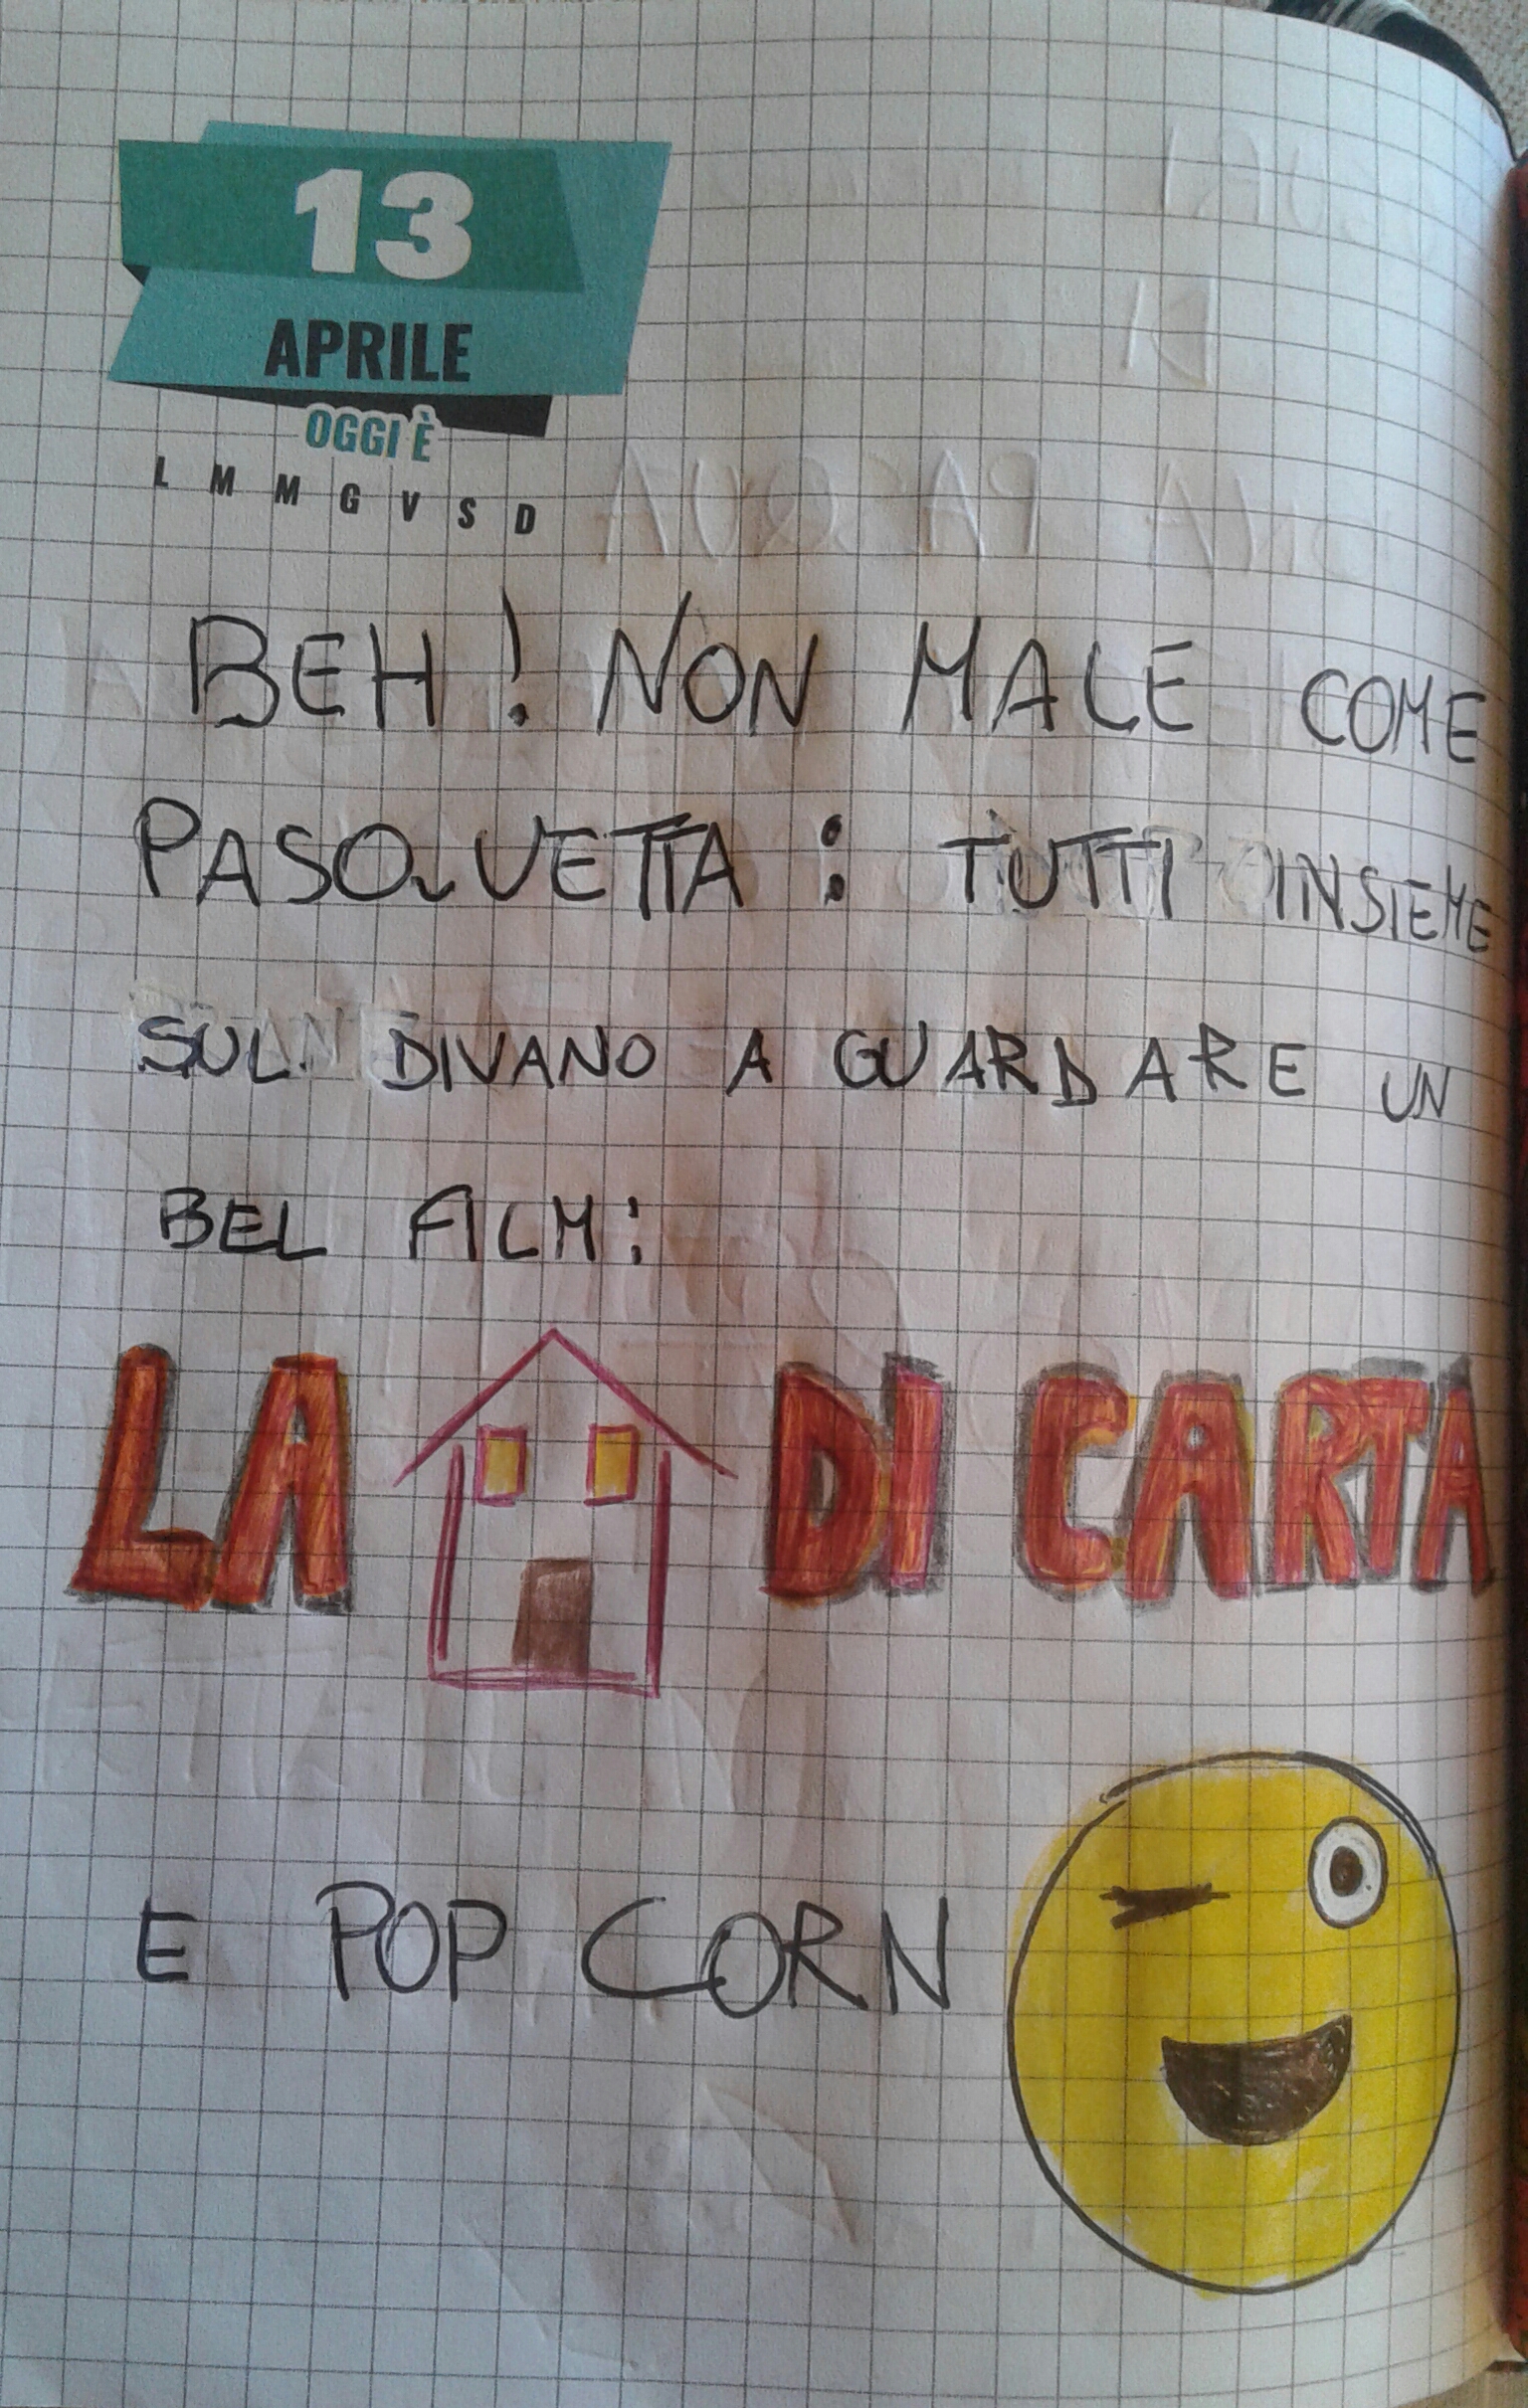 13
APRILE
OGGI È
L M M G V S D
BEH! NON MALE COME
PASQUETTA: TUTTI INSIEME
SUL DIVANO A GUARDARE UN
BEL FILM:
LA DI CARTA
E POP CORN